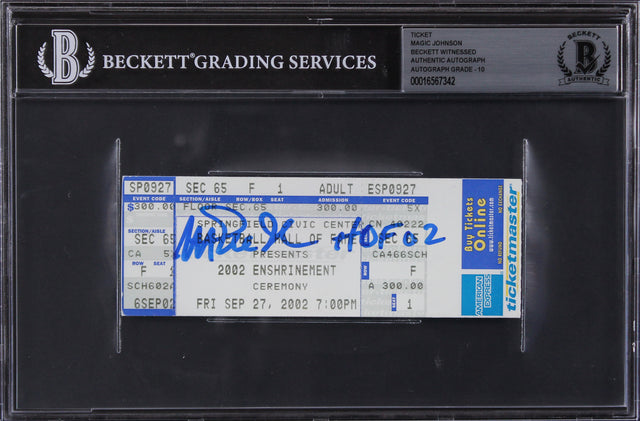 B
BECKETT® GRADING SERVICES
TICKET
MAGIC JOHNSON
BECKETT WITNESSED
AUTHENTIC AUTOGRAPH
AUTOGRAPH GRADE - 10
00016567342
BECKETT
B
AUTHENTIC
SP0927 SEC 65 F 1 ADULT ESP0927
EVENT CODE SECTION/AISLE ROW/BOX SEAT ADMISSION EVENT CODE
$300.00 FLOOR SEC.65 300.00 5X
SECTION/AISLE SPRINGFIELD CIVIC CENTER CN 40222
SEC 65 BASKETBALL HALL OF FAME SEC 65
CA 5 PRESENTS CA466SCH
F 1 2002 ENSHRINEMENT F
SCH602A CEREMONY A 300.00
6SEP02 FRI SEP 27, 2002 7:00PM 1
HOF 02
Buy Tickets
Online
NO REFUND
NO EXCHANGE
AMERICAN
EXPRESS
ticketmaster